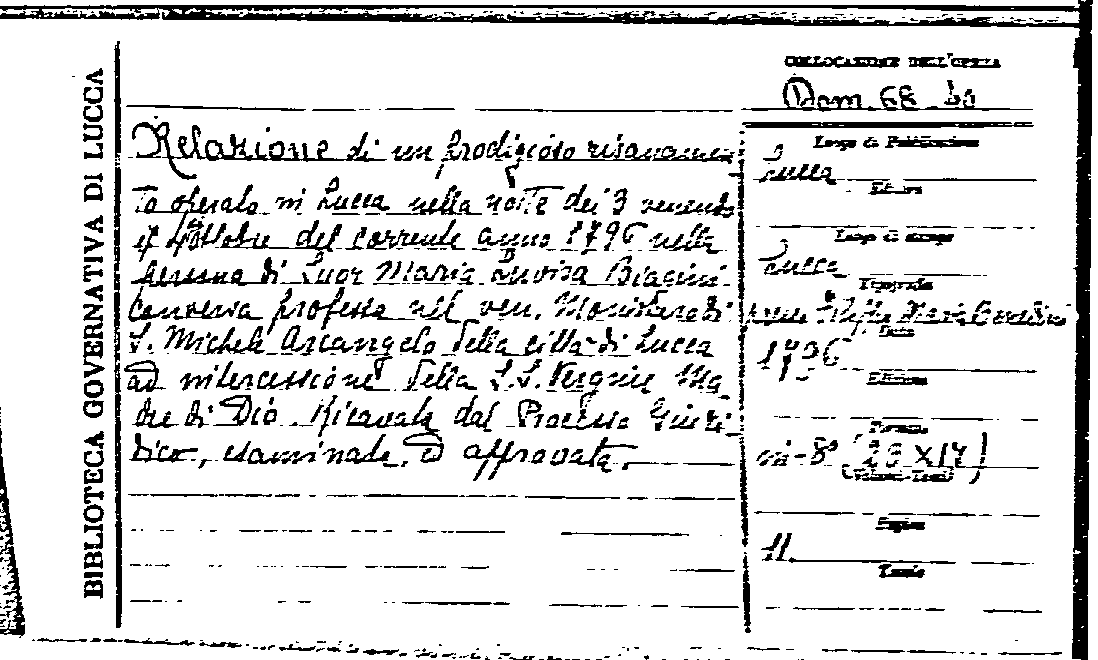 BIBLIOTECA GOVERNATIVA DI LUCCA
COLLOCAZIONE DELL'OPERA
Dom. 68
Relazione di un prodigioso risanamen-
to operato in Lucca nella notte dei 3 venendo
il 4 Ottobre del corrente anno 1796 nella
persona di Suor Maria Luvisa Biagini
Conversa professa nel ven. Monistero di
S. Michele Arcangelo della città di Lucca
ad intercessione della S.S. Vergine Ma-
dre di Dio. Ricavata dal Processo Giuri-
dico, esaminata, ed approvata.
Luogo di Pubblicazione
Lucca
Editore
Luogo di stampa
Lucca
Tipografia
presso
Data
1796
Edizione
Formato
in-8° (23 X 17)
Pagine
11.
Tavole